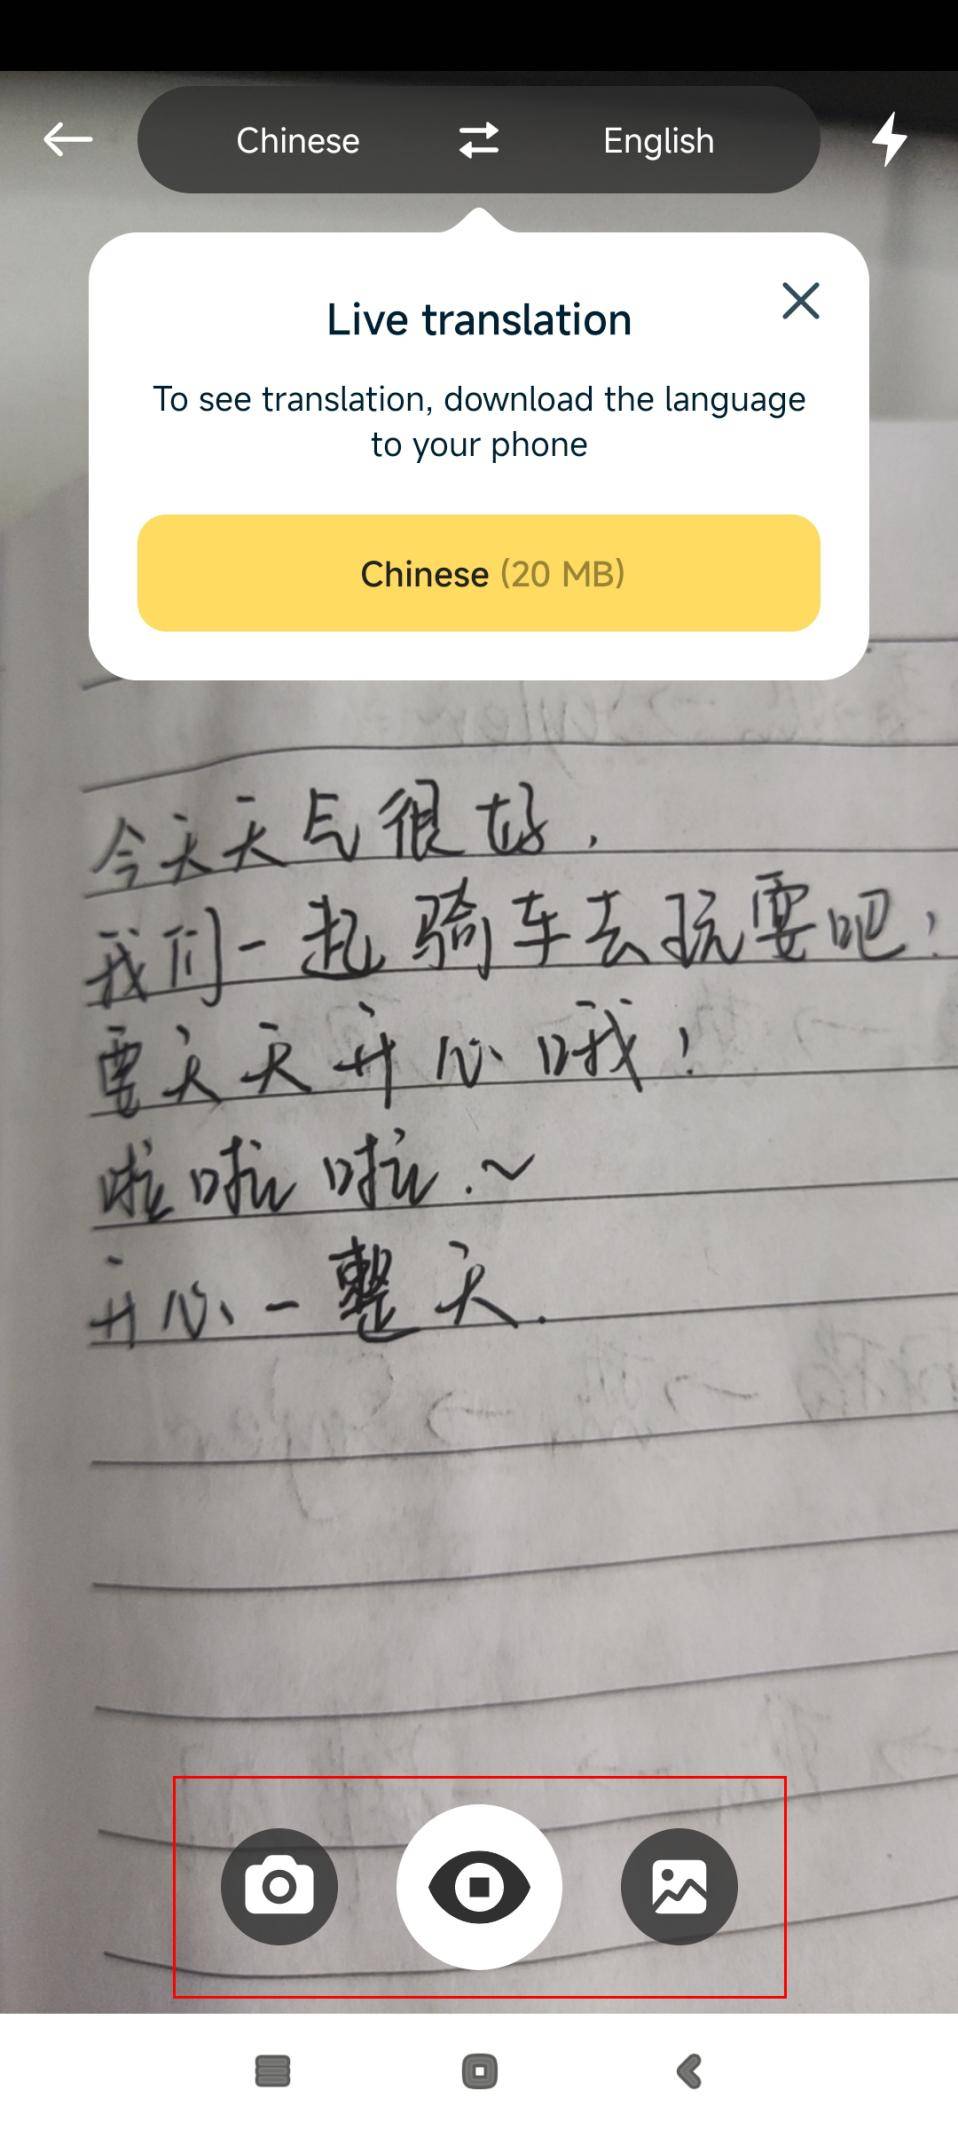 Chinese
English
Live translation
To see translation, download the language
to your phone
Chinese (20 MB)
今天天气很好.
我们一起骑车去玩耍吧!
要天天开心哦!
啦啦啦.~
开心一整天.